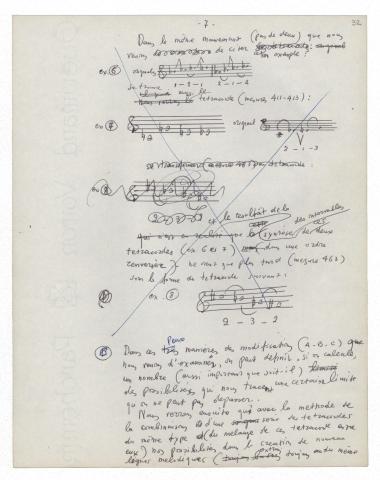 - 7 -
32
Dans le même mouvement (pas de deux) que nous
venons de citer
exemple :
ex. 6
original
1 - 2 - 1 2 - 1 - 2
se trouve aussi le
tetracorde (mesure 411-413) :
ex. 7
original
2 - 1 - 3
ex
est le resultat de la
des intervalles
qui n'est en realité que la synthèse des deux
tetracordes (ex 6 et 7) dans une ordre
ne vient que plus tard (mesure 462)
sous la forme de tetracorde suivant :
ex. 8
2 - 3 - 2
B
Dans ces manières de modification (A-B-C) que
nous venons d'examiner, on peut definir, si on calcule
un nombre (aussi important que soit-il)
des possibilités qui nous tracent une certaine limite
qu'on ne peut pas depasser.
Nous verrons ensuite qu'avec la methode de
la combinaison des tetracordes
du même type (du melange de ces tetracordes entre
eux) nos possibilités dans la creation de nouveaux
lignes melodiques toujours